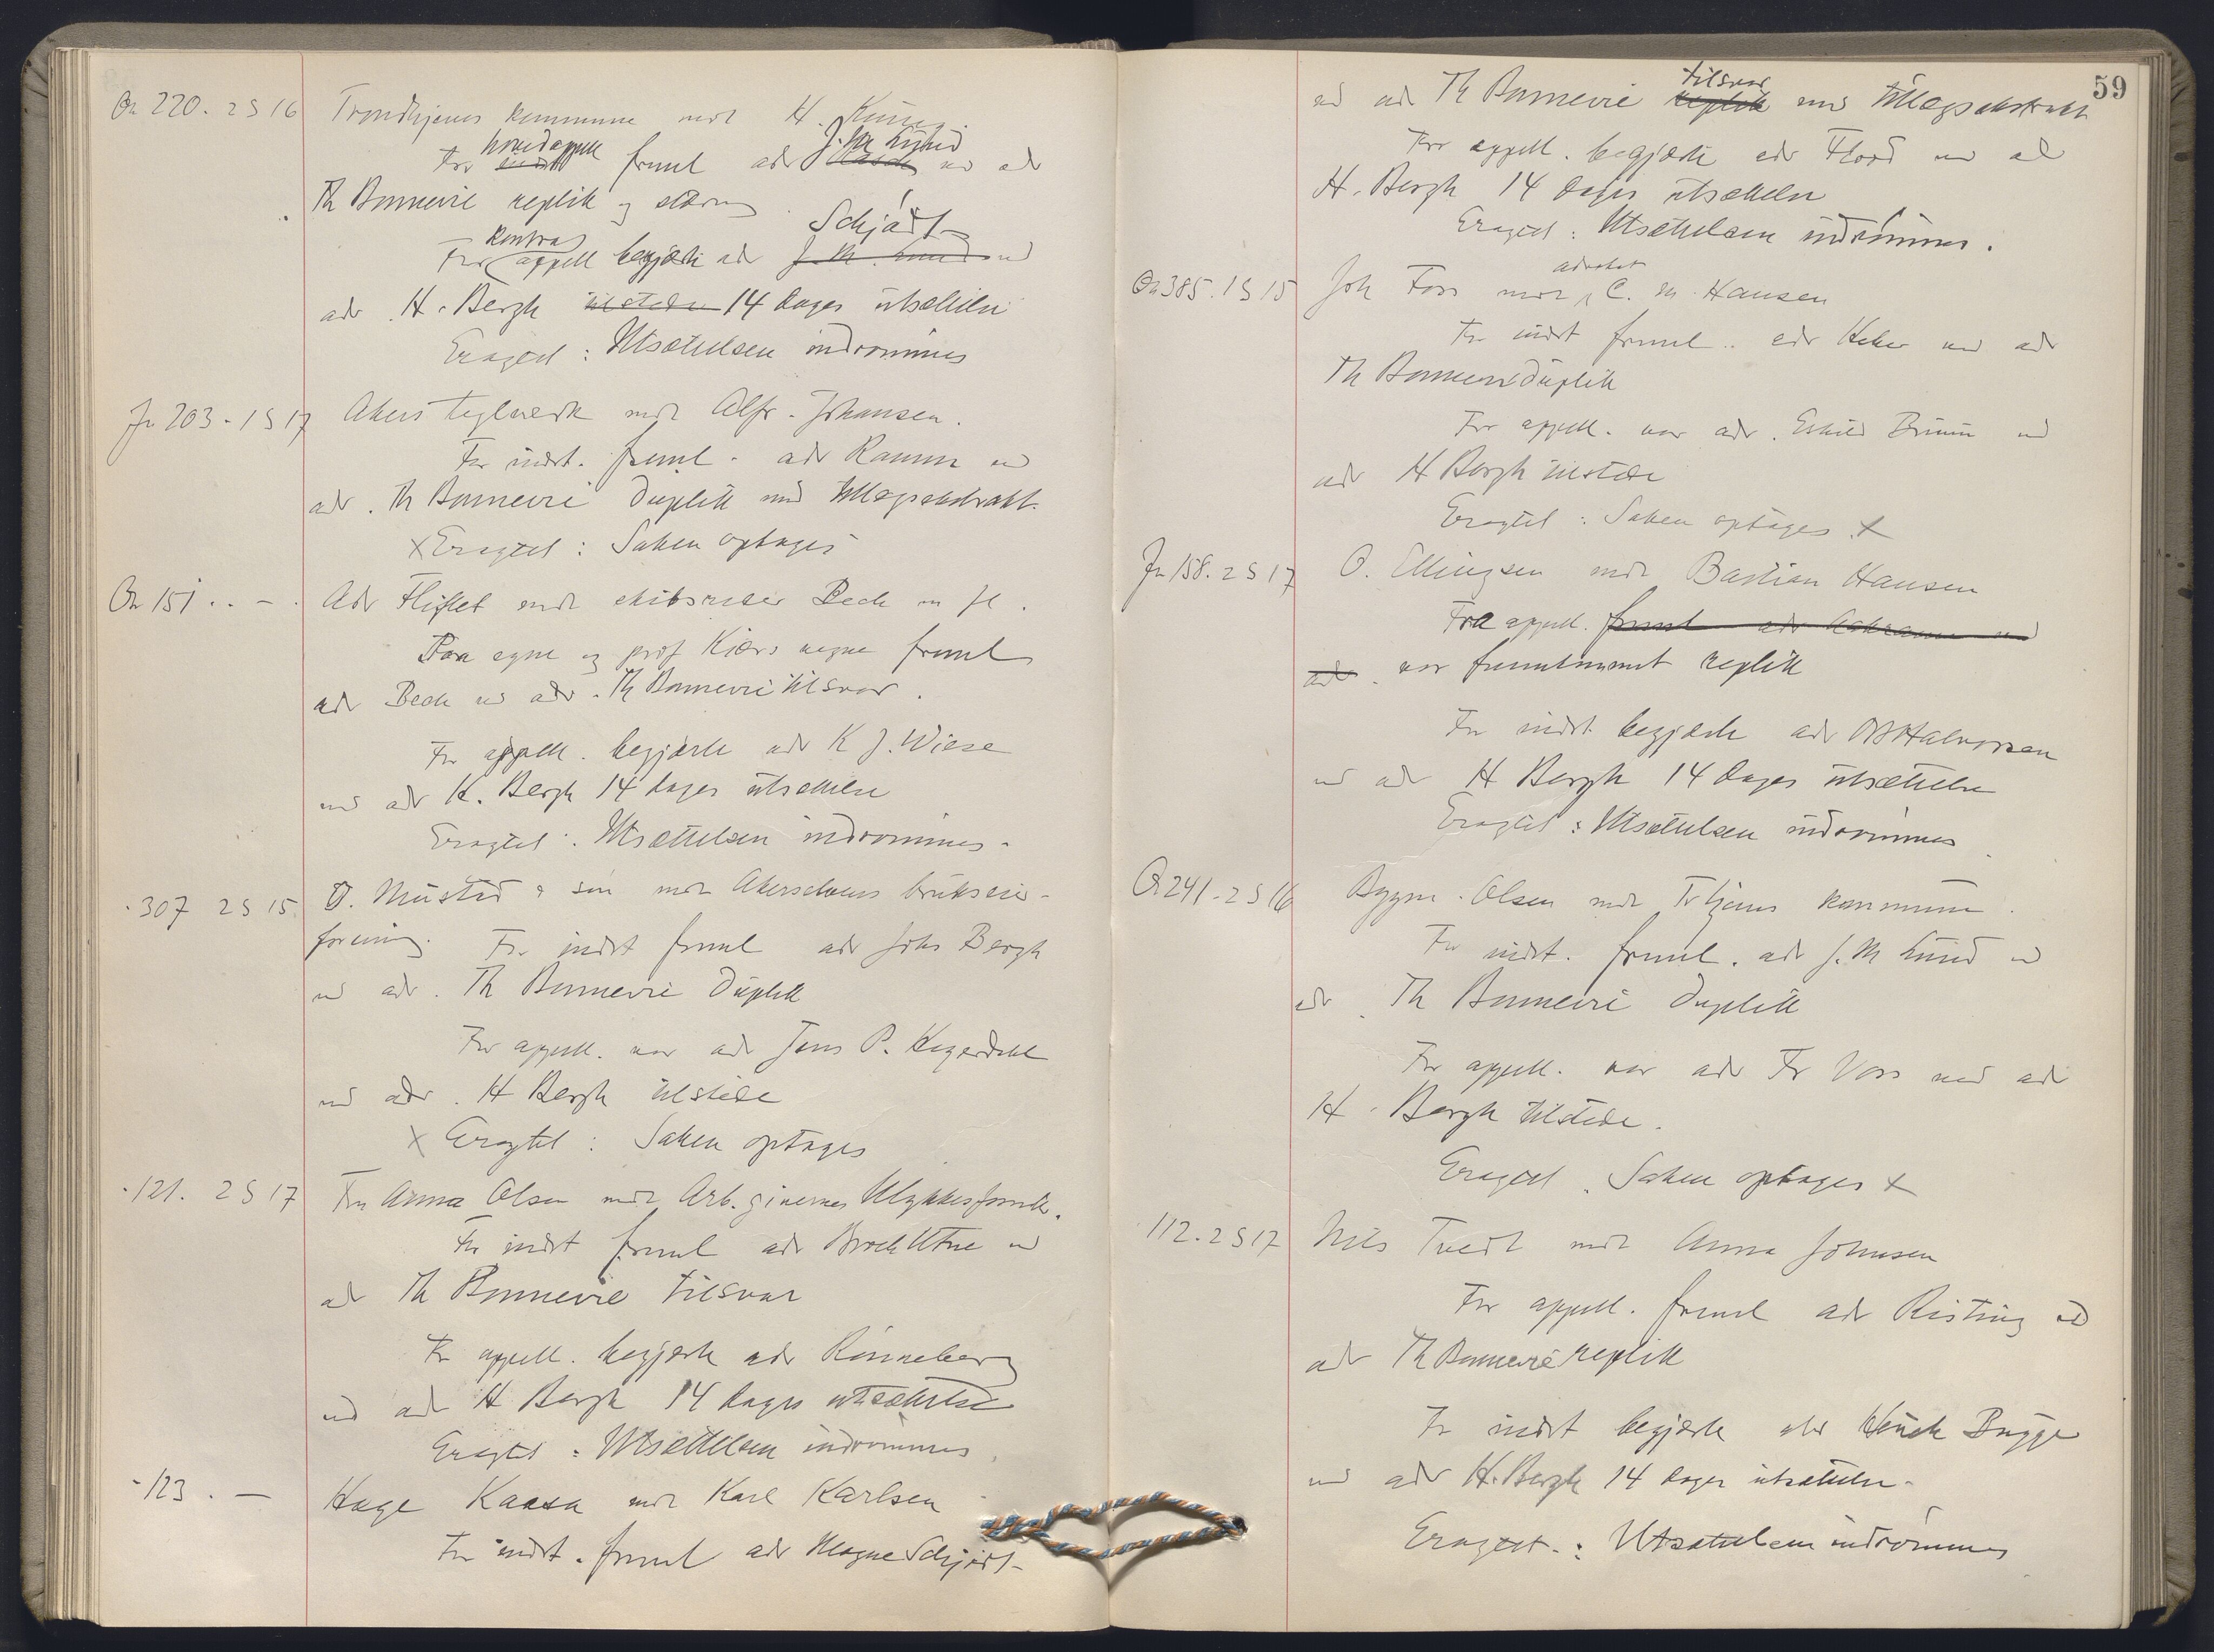 On 220. 2 S 16 Trondhjems kommune mot H.
hovedappell J. M. Lund
For indst freml adv ved adv
Th Bonnevie replik og
Schjødt
kontra
For appell begjærte adv J. M. Lund ved
adv H. Bergh tilstede 14 dages utsættelse
Eragtet: Utsættelsen indrømmes
Jn 203 - 1 S 17 Akers teglverk mot Alfr. Johansen.
For indst. freml. adv Ramm ved
adv. Th Bonnevie duplik med tillægsekstrakt.
x Eragtet: Saken optages
On 151 .. - . Adv Fliflet mot skibsreder Beck m fl.
Paa egne og prof Kiærs vegne freml
adv Beck ved adv. Th Bonnevie tilsvar.
For appell. begjærte adv K J. Wiese
ved adv H. Bergh 14 dages utsættelse
Eragtet: Utsættelsen indrømmes.
- 307 2 S 15 O. Mustad & søn mot Akershus bruksier-
forening. For indst freml adv Johs Bergh
ved adv. Th Bonnevie duplik
For appell. var adv Jens P. Heyerdahl
ved adv. H Bergh tilstede
x Eragtet: Saken optages
- 121. 2 S 17 Fru Anna Olsen mot Arb. givernes Ulykkesforsik.
For indst freml adv Broch Utne ved
adv Th Bonnevie tilsvar
For appell. begjærte adv Rønneberg
ved adv H Bergh 14 dages utsættelse
Eragtet: Utsættelsen indrømmes.
- 123 . — Hage Kaasa mot Karl Karlsen
For indst. freml adv Magne Schjødt
59
tilsvar
ved adv Th Bonnevie replik med tillægsekstrakt
For appell. begjærte adv Flood ved adv
H. Bergh 14 dages utsættelse
Eragtet: Utsættelsen indrømmes.
advokat
On 385. 1 S 15 Joh Foss mot C. M. Hansen
For indst freml. adv ved adv
Th Bonnevie duplik
For appell. var adv. Eskild Bruun ved
adv H Bergh tilstede
Eragtet: Saken optages x
Jn 158. 2 S 17 O. Ellingsen mot Bastian Hansen
Fra appell. freml adv ved
adv. var fremkommet replik
For indst. begjærte adv O Halvorsen
ved adv H Bergh 14 dages utsættelse
Eragtet: Utsættelsen indrømmes
On 241. 2 S 16 Bygm. Olsen mot Tr.hjems kommune.
For indst. freml. adv J. M Lund ved
adv Th Bonnevie duplik
For appell. var adv Fr Voss ved adv
H. Bergh tilstede.
Eragtet. Saken optages x
112. 2 S 17 Nils Tvedt mot Anna Johnsen
For appell. freml adv Risting ved
adv Th Bonnevie replik
For indst begjærte adv Henrik Bugge
ved adv H. Bergh 14 dages utsættelse.
Eragtet.: Utsættelsen indrømmes